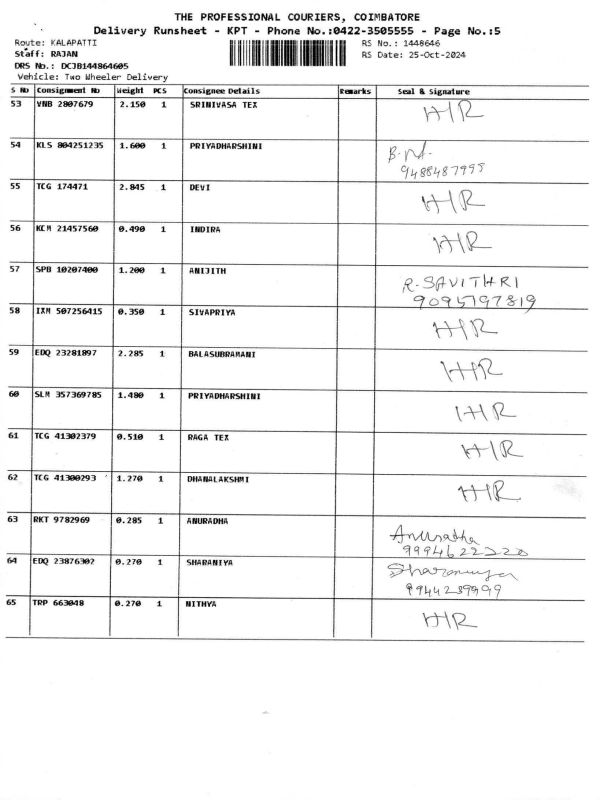 THE PROFESSIONAL COURIERS, COIMBATORE
Delivery Runsheet - KPT - Phone No.:0422-3505555 - Page No.:5
Route: KALAPATTI RS No.: 1448646
Staff: RAJAN RS Date: 25-Oct-2024
DRS No.: DCJB144864605
Vehicle: Two Wheeler Delivery
S No Consignment No Weight PCS Consignee Details Remarks Seal & Signature
53 VNB 2807679 2.150 1 SRINIVASA TEX H/R
54 KLS 804251235 1.600 1 PRIYADHARSHINI
9488487995
55 TCG 174471 2.845 1 DEVI H/R
56 KCM 21457560 0.490 1 INDIRA H/R
57 SPB 10207400 1.200 1 ANIJITH R. SAVITHRI
9095797819
58 IXM 507256415 0.350 1 SIVAPRIYA H/R
59 EDQ 23281897 2.285 1 BALASUBRAMANI H/R
60 SLM 357369785 1.480 1 PRIYADHARSHINI H/R
61 TCG 41302379 0.510 1 RAGA TEX H/R
62 TCG 41300293 1.270 1 DHANALAKSHMI H/R
63 RKT 9782969 0.285 1 ANURADHA Anuratha
9994622220
64 EDQ 23876302 0.270 1 SHARANIYA Sharaniya
9944239999
65 TRP 663048 0.270 1 NITHYA H/R